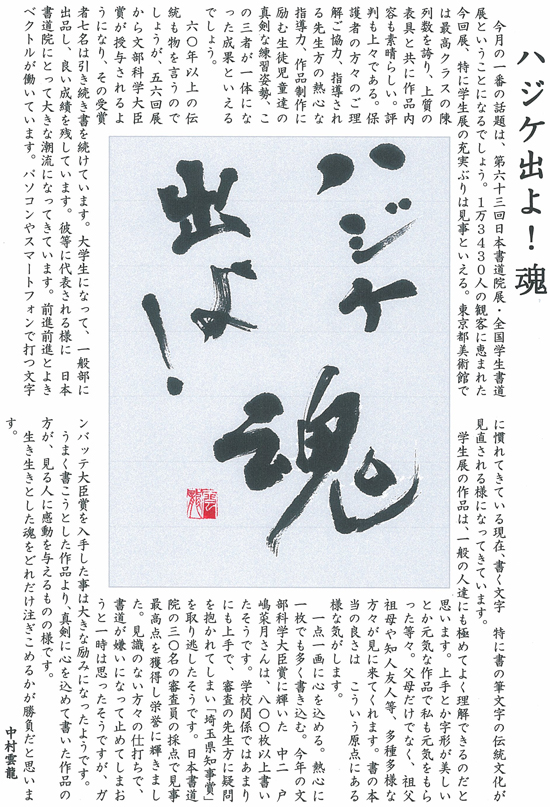 ハジケ出よ！魂
今月の一番の話題は、第六十三回日本書道院展・全国学生書道
展ということになるでしょう。１万３４３０人の観客に恵まれた
今回展、特に学生展の充実ぶりは見事といえる。東京都美術館で
は最高クラスの陳
列数を誇り、上質の
表具と共に作品内
容も素晴らしい。評
判も上々である。保
護者の方々のご理
解ご協力、指導され
る先生方の熱心な
指導力、作品制作に
励む生徒児童達の
真剣な練習姿勢、こ
の三者が一体にな
った成果といえる
でしょう。
六〇年以上の伝
統も物を言うので
しょうが、五六回展
から文部科学大臣
賞が授与されるよ
うになり、その受賞
者七名は引き続き書を続けています。大学生になって、一般部に
出品し、良い成績を残しています。彼等に代表される様に　日本
書道院にとって大きな潮流になってきています。前進前進とよき
ベクトルが働いています。パソコンやスマートフォンで打つ文字
ハジケ
出よ！
魂
に慣れてきている現在、書く文字　特に書の筆文字の伝統文化が
見直される様になってきています。
学生展の作品は、一般の人達にも極めてよく理解できるのだと
思います。上手とか字形が美しい
とか元気な作品で私も元気をもら
った等々。父母だけでなく、祖父
祖母や知人友人等、多種多様な
方々が見に来てくれます。書の本
当の良さは　こういう原点にある
様な気がします。
一点一画に心を込める。熱心に
一枚でも多く書き込む。今年の文
部科学大臣賞に輝いた　中二　戸
嶋菜月さんは、八〇〇枚以上書い
たそうです。学校関係ではあまり
にも上手で、審査の先生方に疑問
を抱かれてしまい「埼玉県知事賞」
を取り逃したそうです。日本書道
院の三〇名の審査員の採点で見事
最高点を獲得し栄誉に輝きまし
た。見識のない方々の仕打ちで、
書道が嫌いになって止めてしまお
うと一時は思ったそうですが、ガ
ンバッテ大臣賞を入手した事は大きな励みになったようです。
うまく書こうとした作品より、真剣に心を込めて書いた作品の
方が、見る人に感動を与えるものの様です。
生き生きとした魂をどれだけ注ぎこめるかが勝負だと思いま
す。
中村雲龍